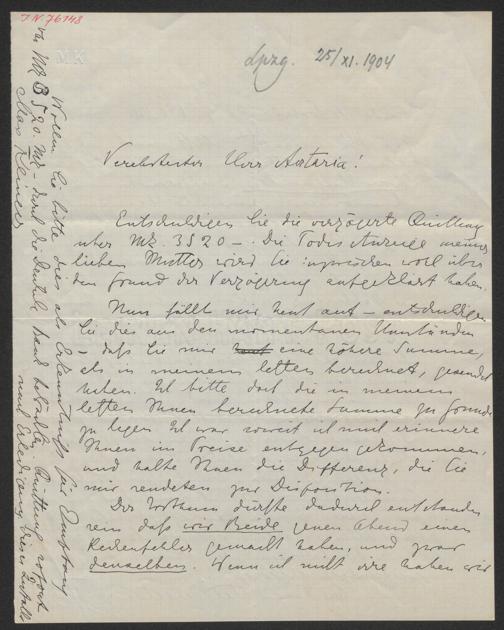 IN 76148
MK
Lpzg. 25/XI. 1904
Verehrtester Herr Artaria!
Entschuldigen Sie die verzögerte Quittung
über Mk. 3520 –. Die Todesanzeige meiner
lieben Mutter wird Sie inzwischen wohl über
den Grund der Verzögerung aufgeklärt haben.
Nun fällt mir heut auf – entschuldigen
Sie dies aus den momentanen Umständen
– daß Sie mir eine höhere Summe,
als in meinem letzten berechnet, gesendet
haben. Ich bitte doch die in meinem
letzten Ihnen berechnete Summe zu Grunde
zu legen. Ich war soweit ich mich erinnere
Ihnen im Preise entgegen gekommen,
und halte Ihnen die Differenz, die Sie
mir sendeten zur Disposition.
Der Irrthum dürfte dadurch entstanden
sein daß wir Beide jenen Abend einen
Rechenfehler gemacht haben, und zwar
denselben. Wenn ich nicht irre haben wir
Wollen Sie bitte dies als Erkenntniß für Empfang
von Mk 3520. Mk – durch die Deutsche Bank behalten, Quittung sofort
nach Erledigung dieses
Max Klinger